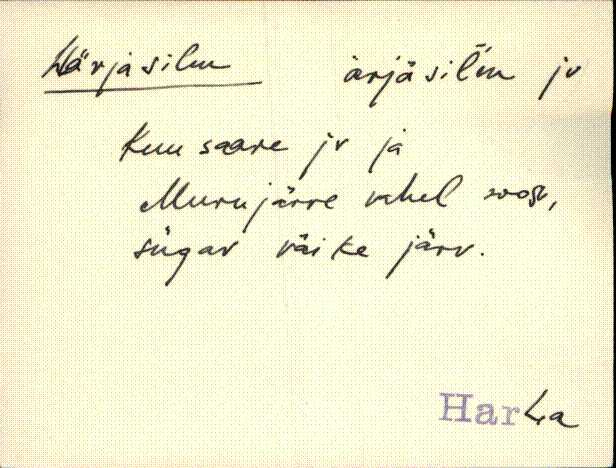 Härjasilm ärjäsil̆m jv
Kuusaare jv ja
Murujärve vahel soos,
sügav väike järv.
Harka